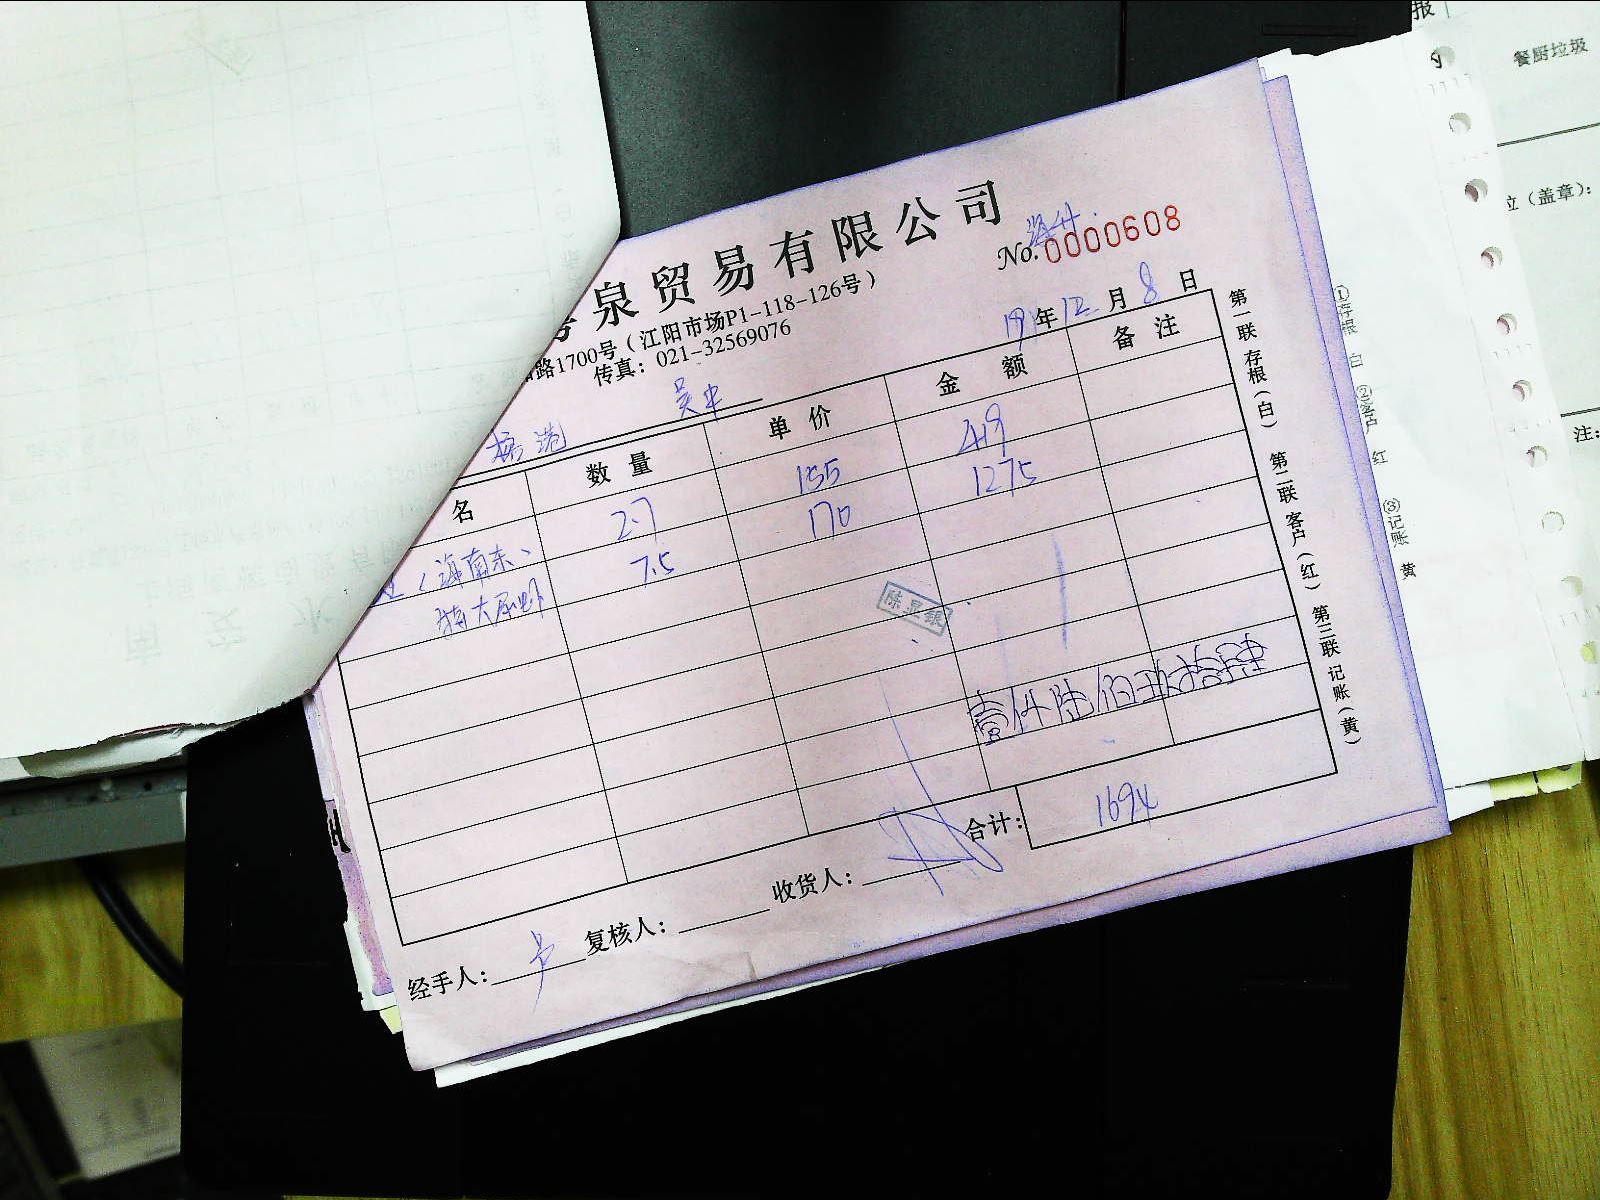 泉贸易有限公司
No. 0000608
路1700号（江阳市场P1-118-126号）
传真：021-32569076
19年12月8日
名 数量 单价 金额 备注
2.7 155 419
（海南东、 7.5 170 1275
特大尿虾
陈显银
壹仟陆佰玖拾肆
合计： 1694
经手人： 复核人： 收货人：
第一联 存根（白） 第二联 客户（红） 第三联 记账（黄）
①存根 白 ②客户 红 ③记账 黄
报
餐厨垃圾
位（盖章）：
注：